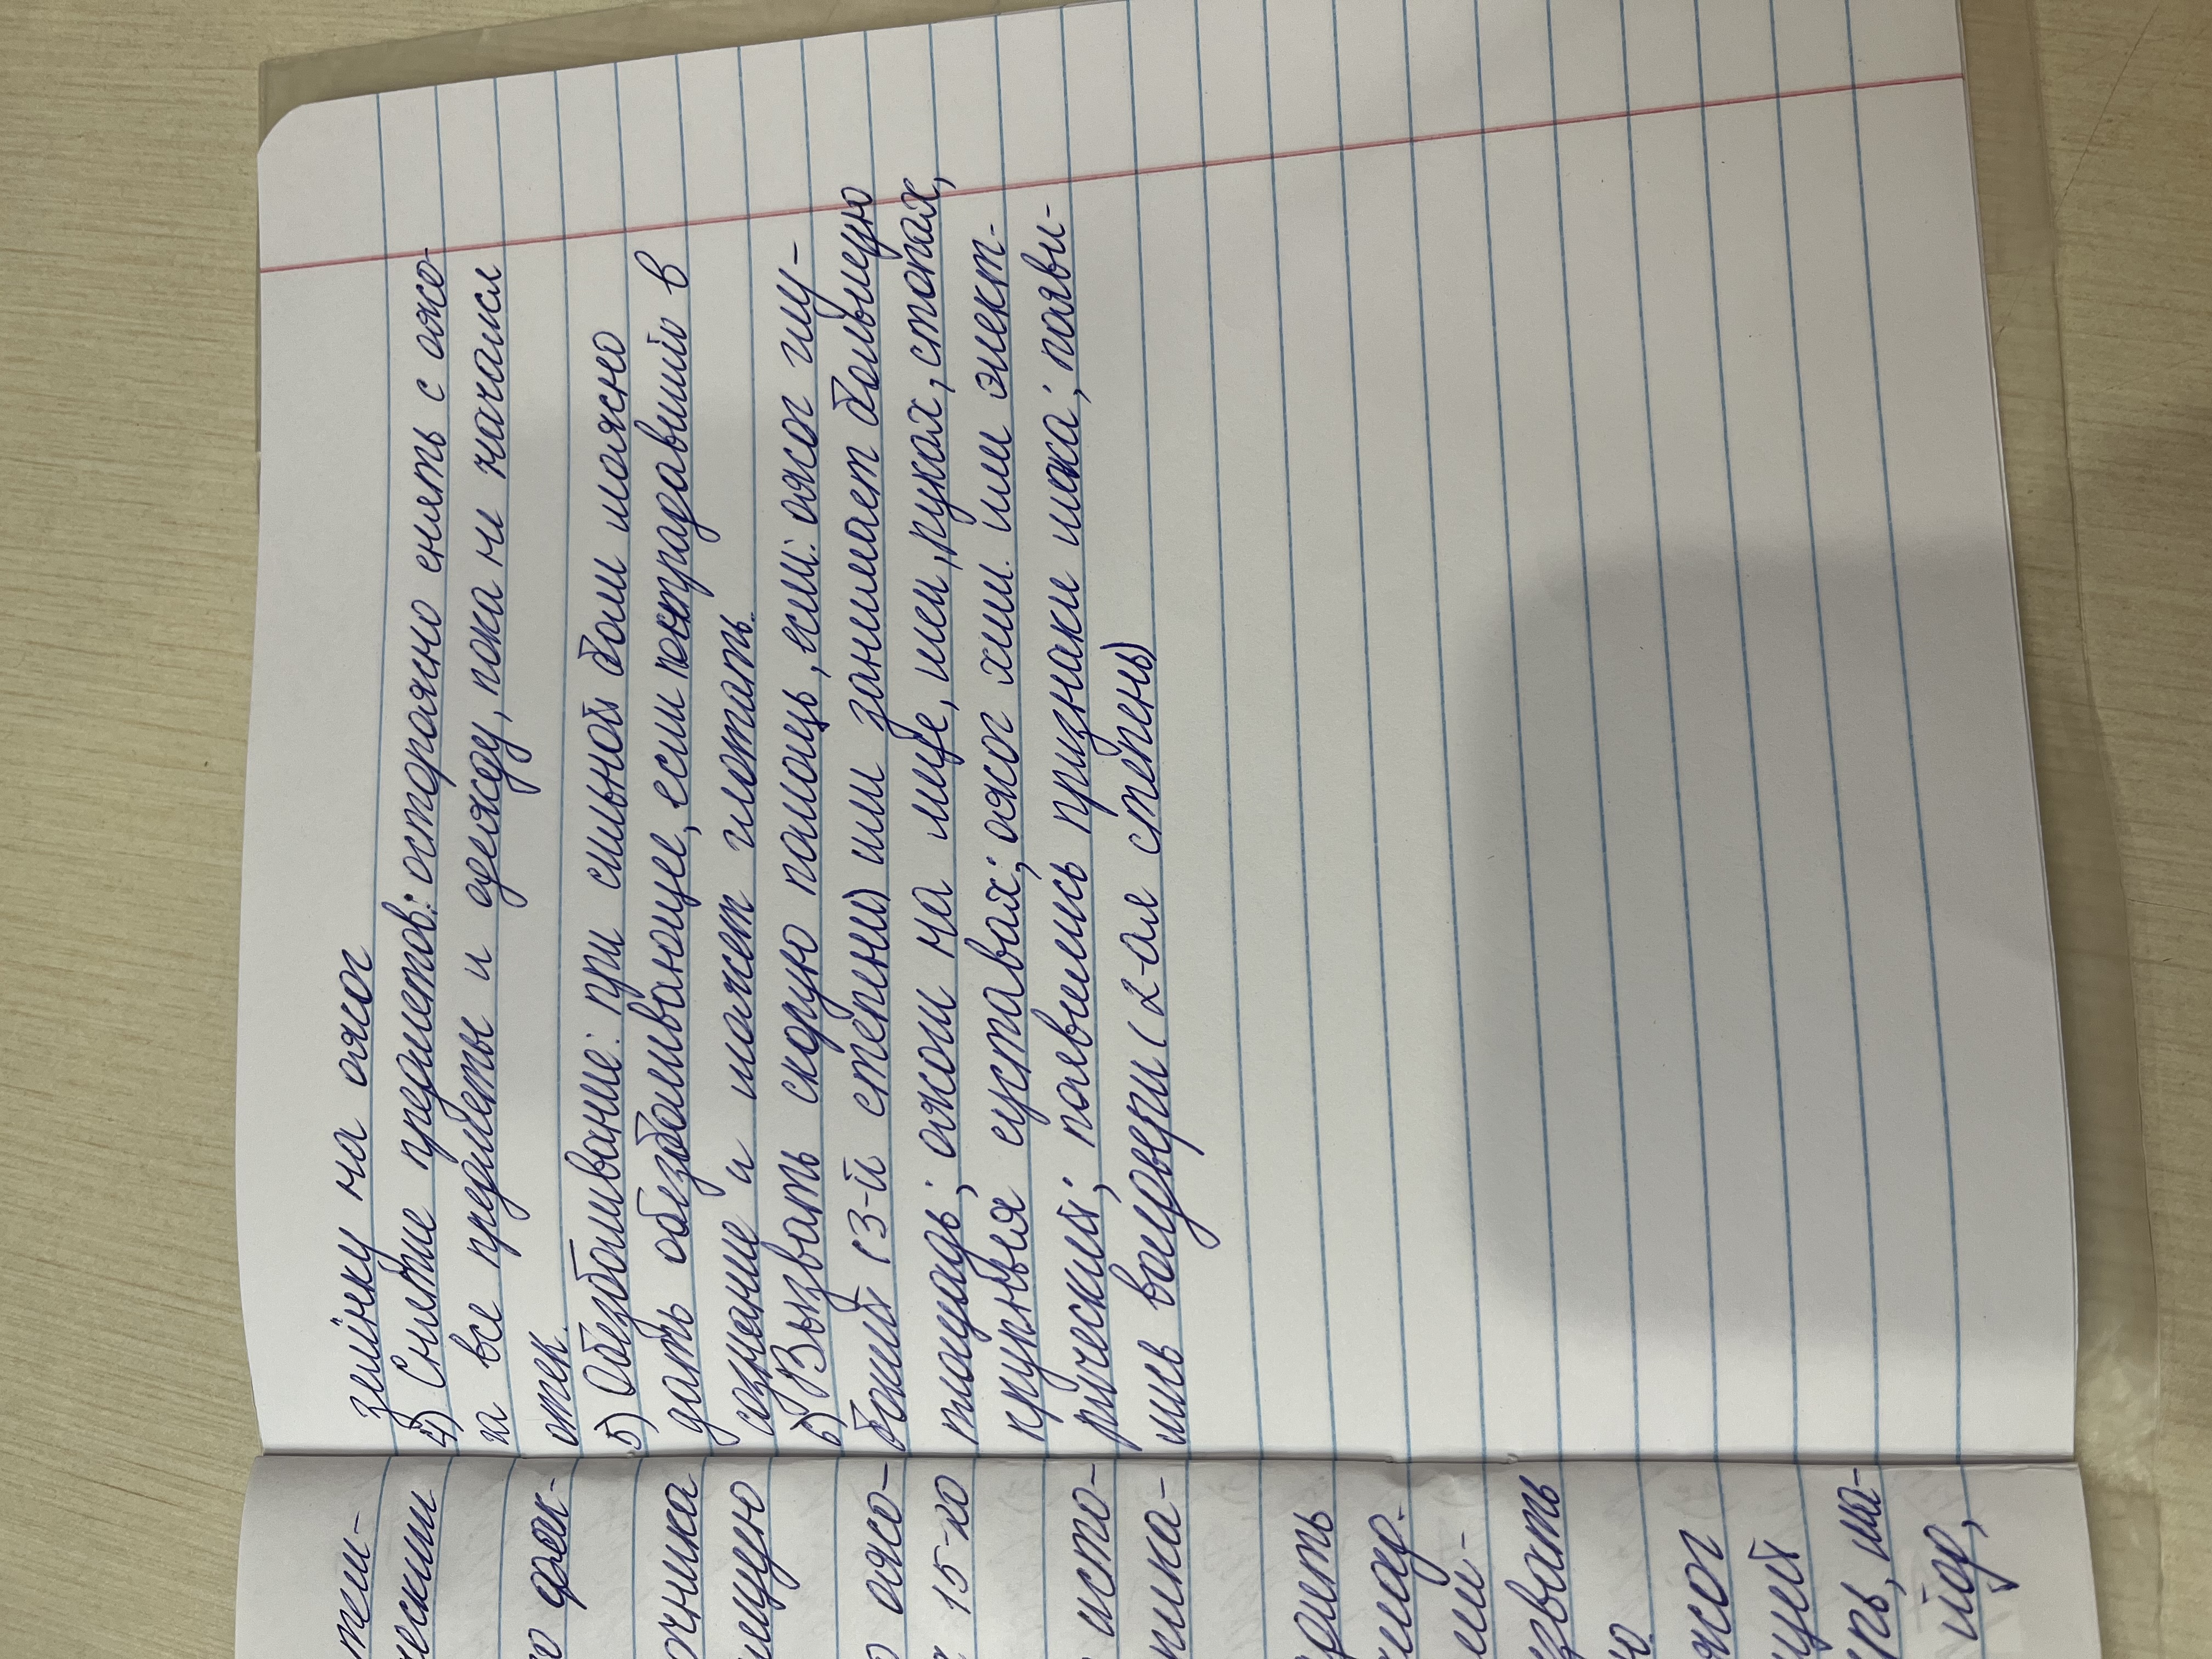 зелёнку на ожог
4) Снятие предметов: осторожно снять с ожо-
га все предметы и одежду, пока н начался
отек.
5) Обезболивание: при сильной боли можно
дать обезболивающее, если пострадавший в
сознание и может глотать.
6) Вызвать скорую помощь, если: ожог глу-
бокий (3-й степени) или занимает большую
площадь; ожоги на лице, шеи, руках, стопах,
крупныя суставах; ожог хим. или элект-
рический; появились признаки шока; появи-
лись волдыри (2-ая степень)
тели-
ческими
фек-
очника
ищую
ожо-
15-20
исто-
рить
звать
жог
щей